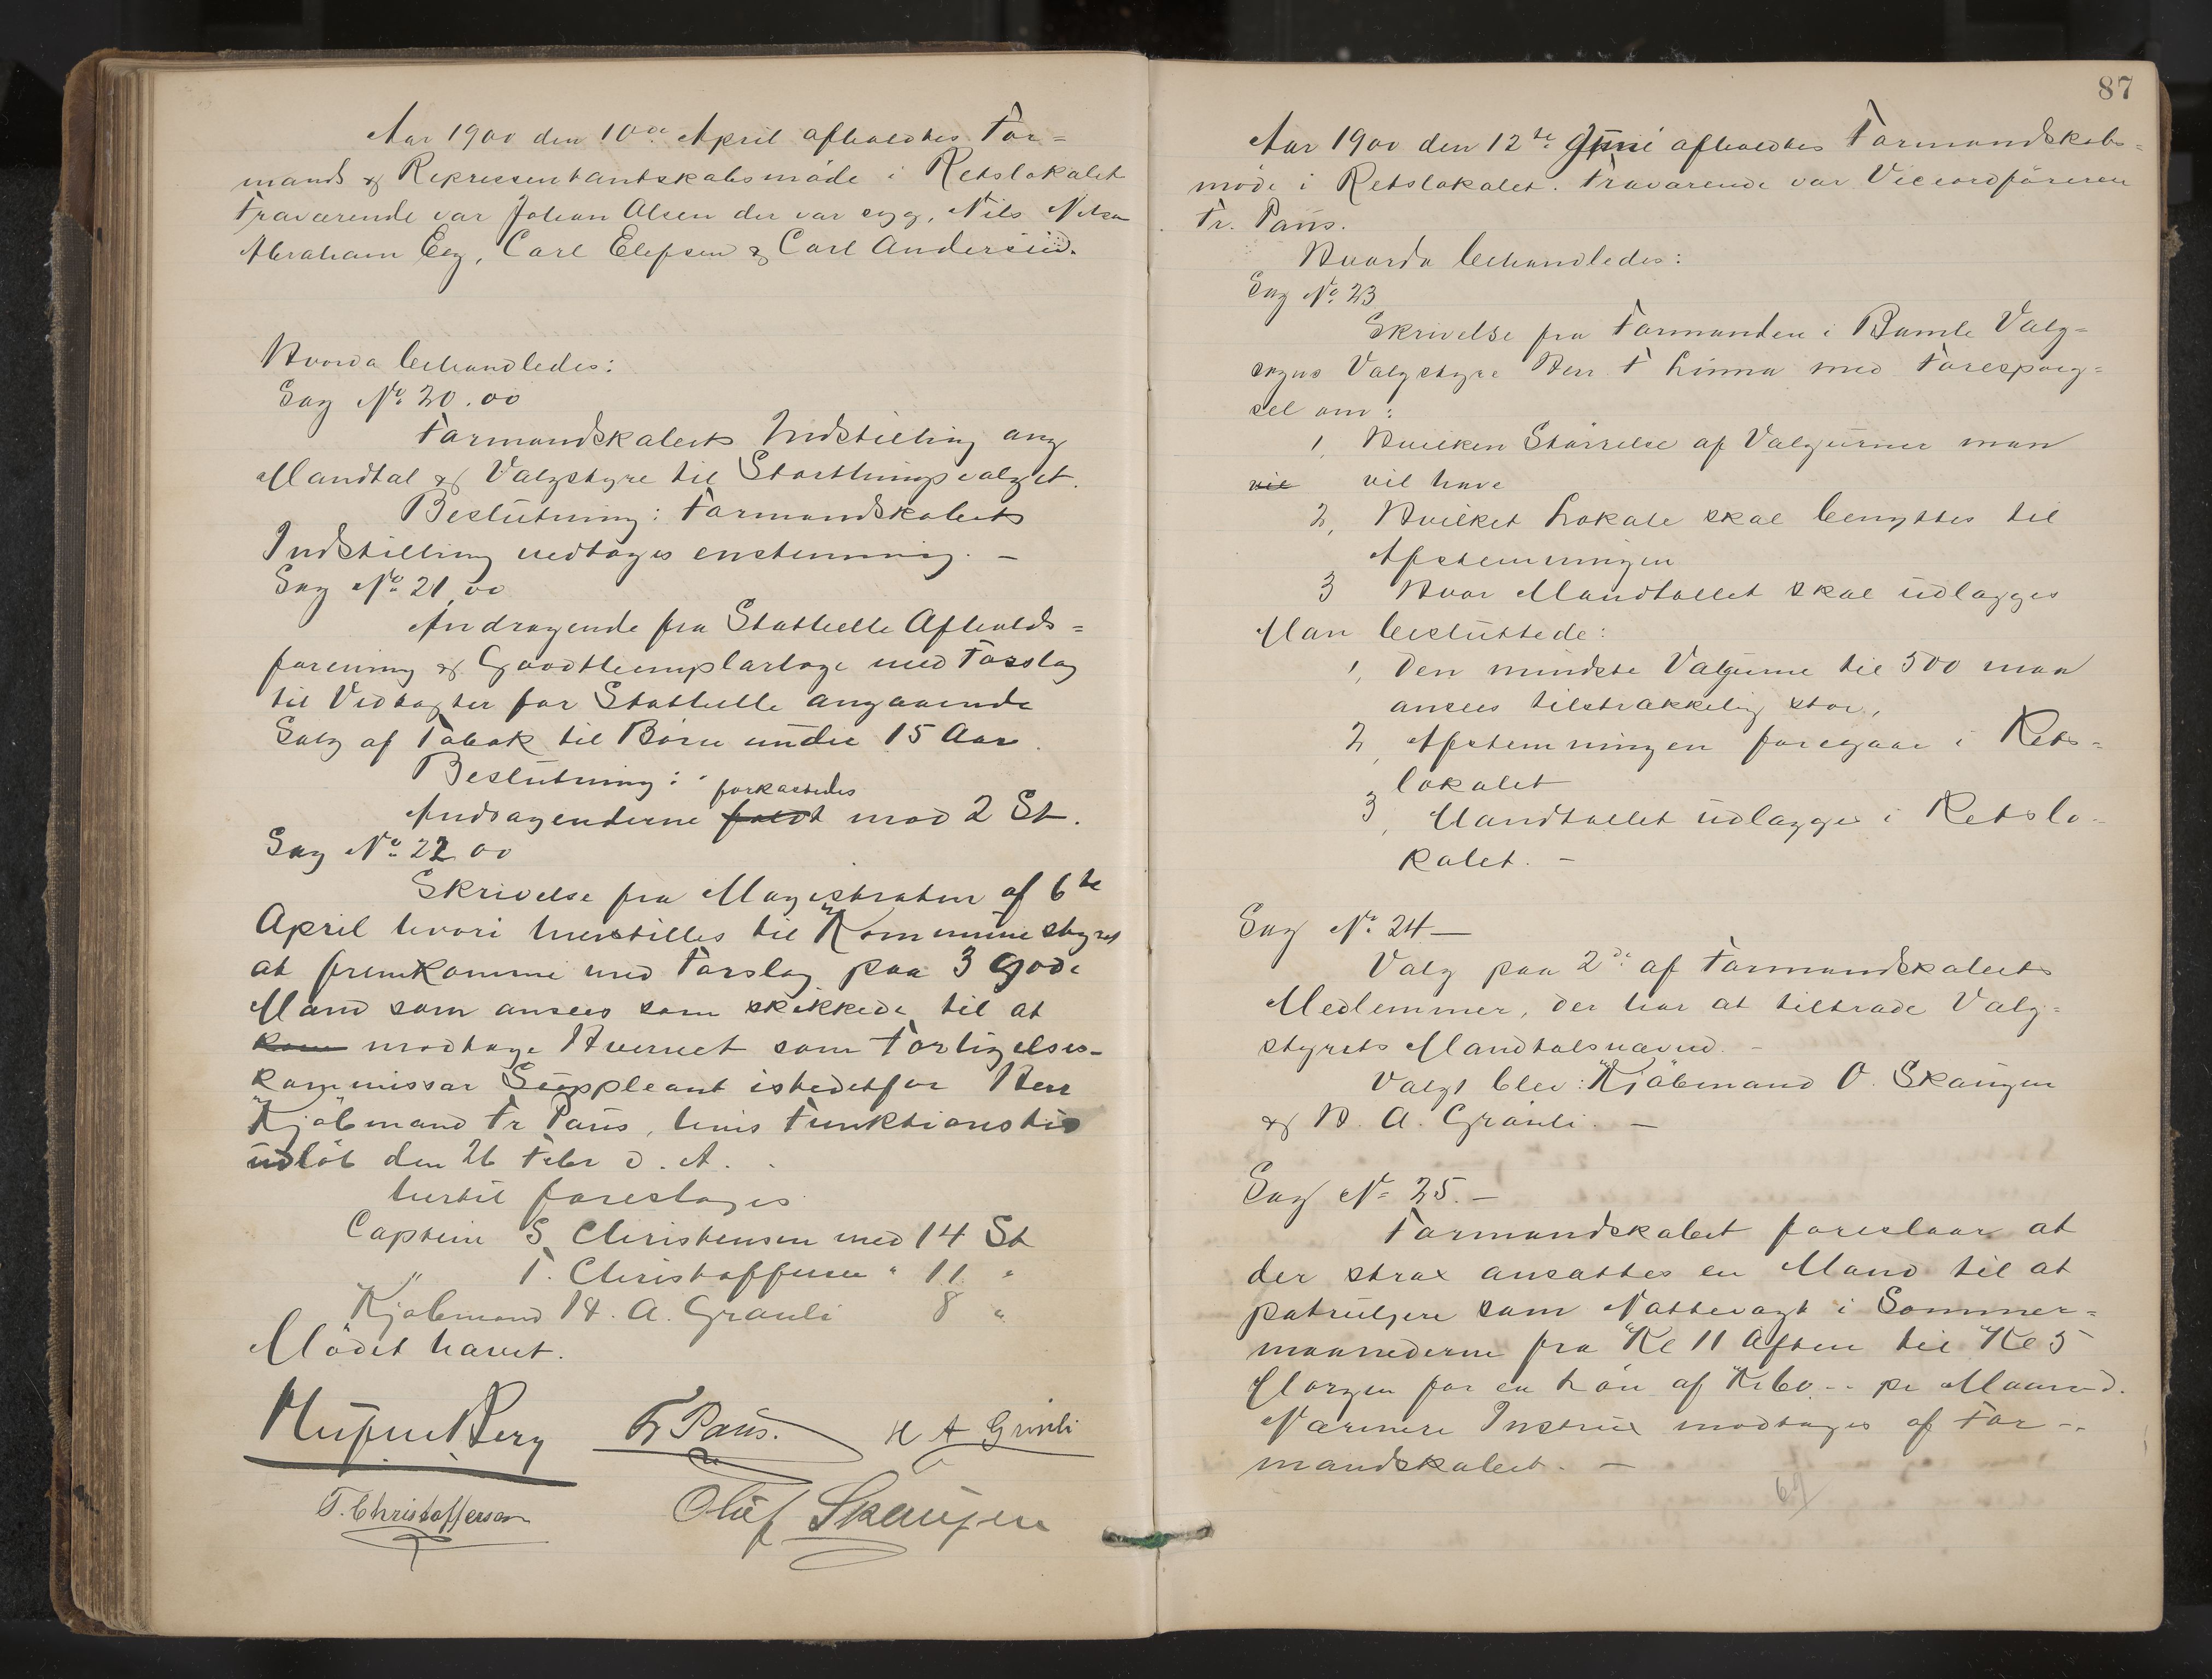 Aar 1900 den 10de April afholdtes For=
mands & Repressentantskabsmöde i Retslokalet
Fraværende var Johan Olsen der var syg, Nils Nilsen
Abraham Eeg, Carl Elefsen & Carl Andersen.
Hvorda behandledes:
Sag No 20.00
Formandskabets Indstilling ang
Mandtal & Valgstyre til Storthingsvalget.
Beslutning: Formandskabets
Indstilling vedtoges enstemmig. –
Sag No 21,00
Andragende fra Stathelle Afholds=
forening & Goodtemplarloge med Forslag
til Vedtægter for Stathelle angaaende
Salg af Tobak til Börn under 15 Aar.
Beslutning:
forkastedes
Andragenderne faldt mod 2 St.
Sag No 22 00
Skrivelse fra Magistraten af 6te
April hvori henstilles til Kommunestyret
at fremkomme med Forslag paa 3 gode
Mænd som ansees som skikkede til at
kom modtage Hvervet som Forligelses-
kommissær Suppleant istedetfor Herr
Kjöbmand Fr Paus, hvis Funktionstid
udlöb den 26 Febr d. A.
hertil foresloges
Captein S Christensen med 14 St
" T. Christoffersen " 11 "
Kjöbmand H. A. Grönli 8 "
Mödet hævet.
Fr Paus.
H A Grönli
T. Christoffersen
Oluf Skaugen
87
Aar 1900 den 12te Juni afholdtes Formandskabs=
möde i Retslokalet. Fraværende var Viceordföreren
Fr. Paus.
Hvorda behandledes:
Sag No 23
Skrivelse fra Formanden i Bamle Valg=
sogns Valgstyre Herr F Linna med Forespörg=
sel om:
1, Hvilken Störrelse af Valgurner man
vil vil have
2, Hvilket Lokale skal benyttes til
Afstemningen
3 Hvor Mandtallet skal udlægges
Man besluttede:
1, Den mindste Valgurne til 500 man
ansees tilstrækkelig stor,
2, Afstemningen foregaar i Rets=
lokalet
3, Mandtallet udlægges i Retslo-
kalet. –
Sag No 24 –
Valg paa 2de af Formandskabets
Medlemmer, der har at tiltræde Valg=
styrets Mandtalsnævnd. –
Valgt blev: Kjöbmand O. Skaugen
& H. A. Grönli. –
Sag No 25. –
Formandskabet foreslaar at
der strax ansættes en Mand til at
patruljere som Nattevagt i Sommer=
maanederne fra Kl 11 Aften til Kl 5
Morgen for en Lön af Kr 60 -- pr Maaned.
Nærmere Instrux modtages af For-
mandskabet. –